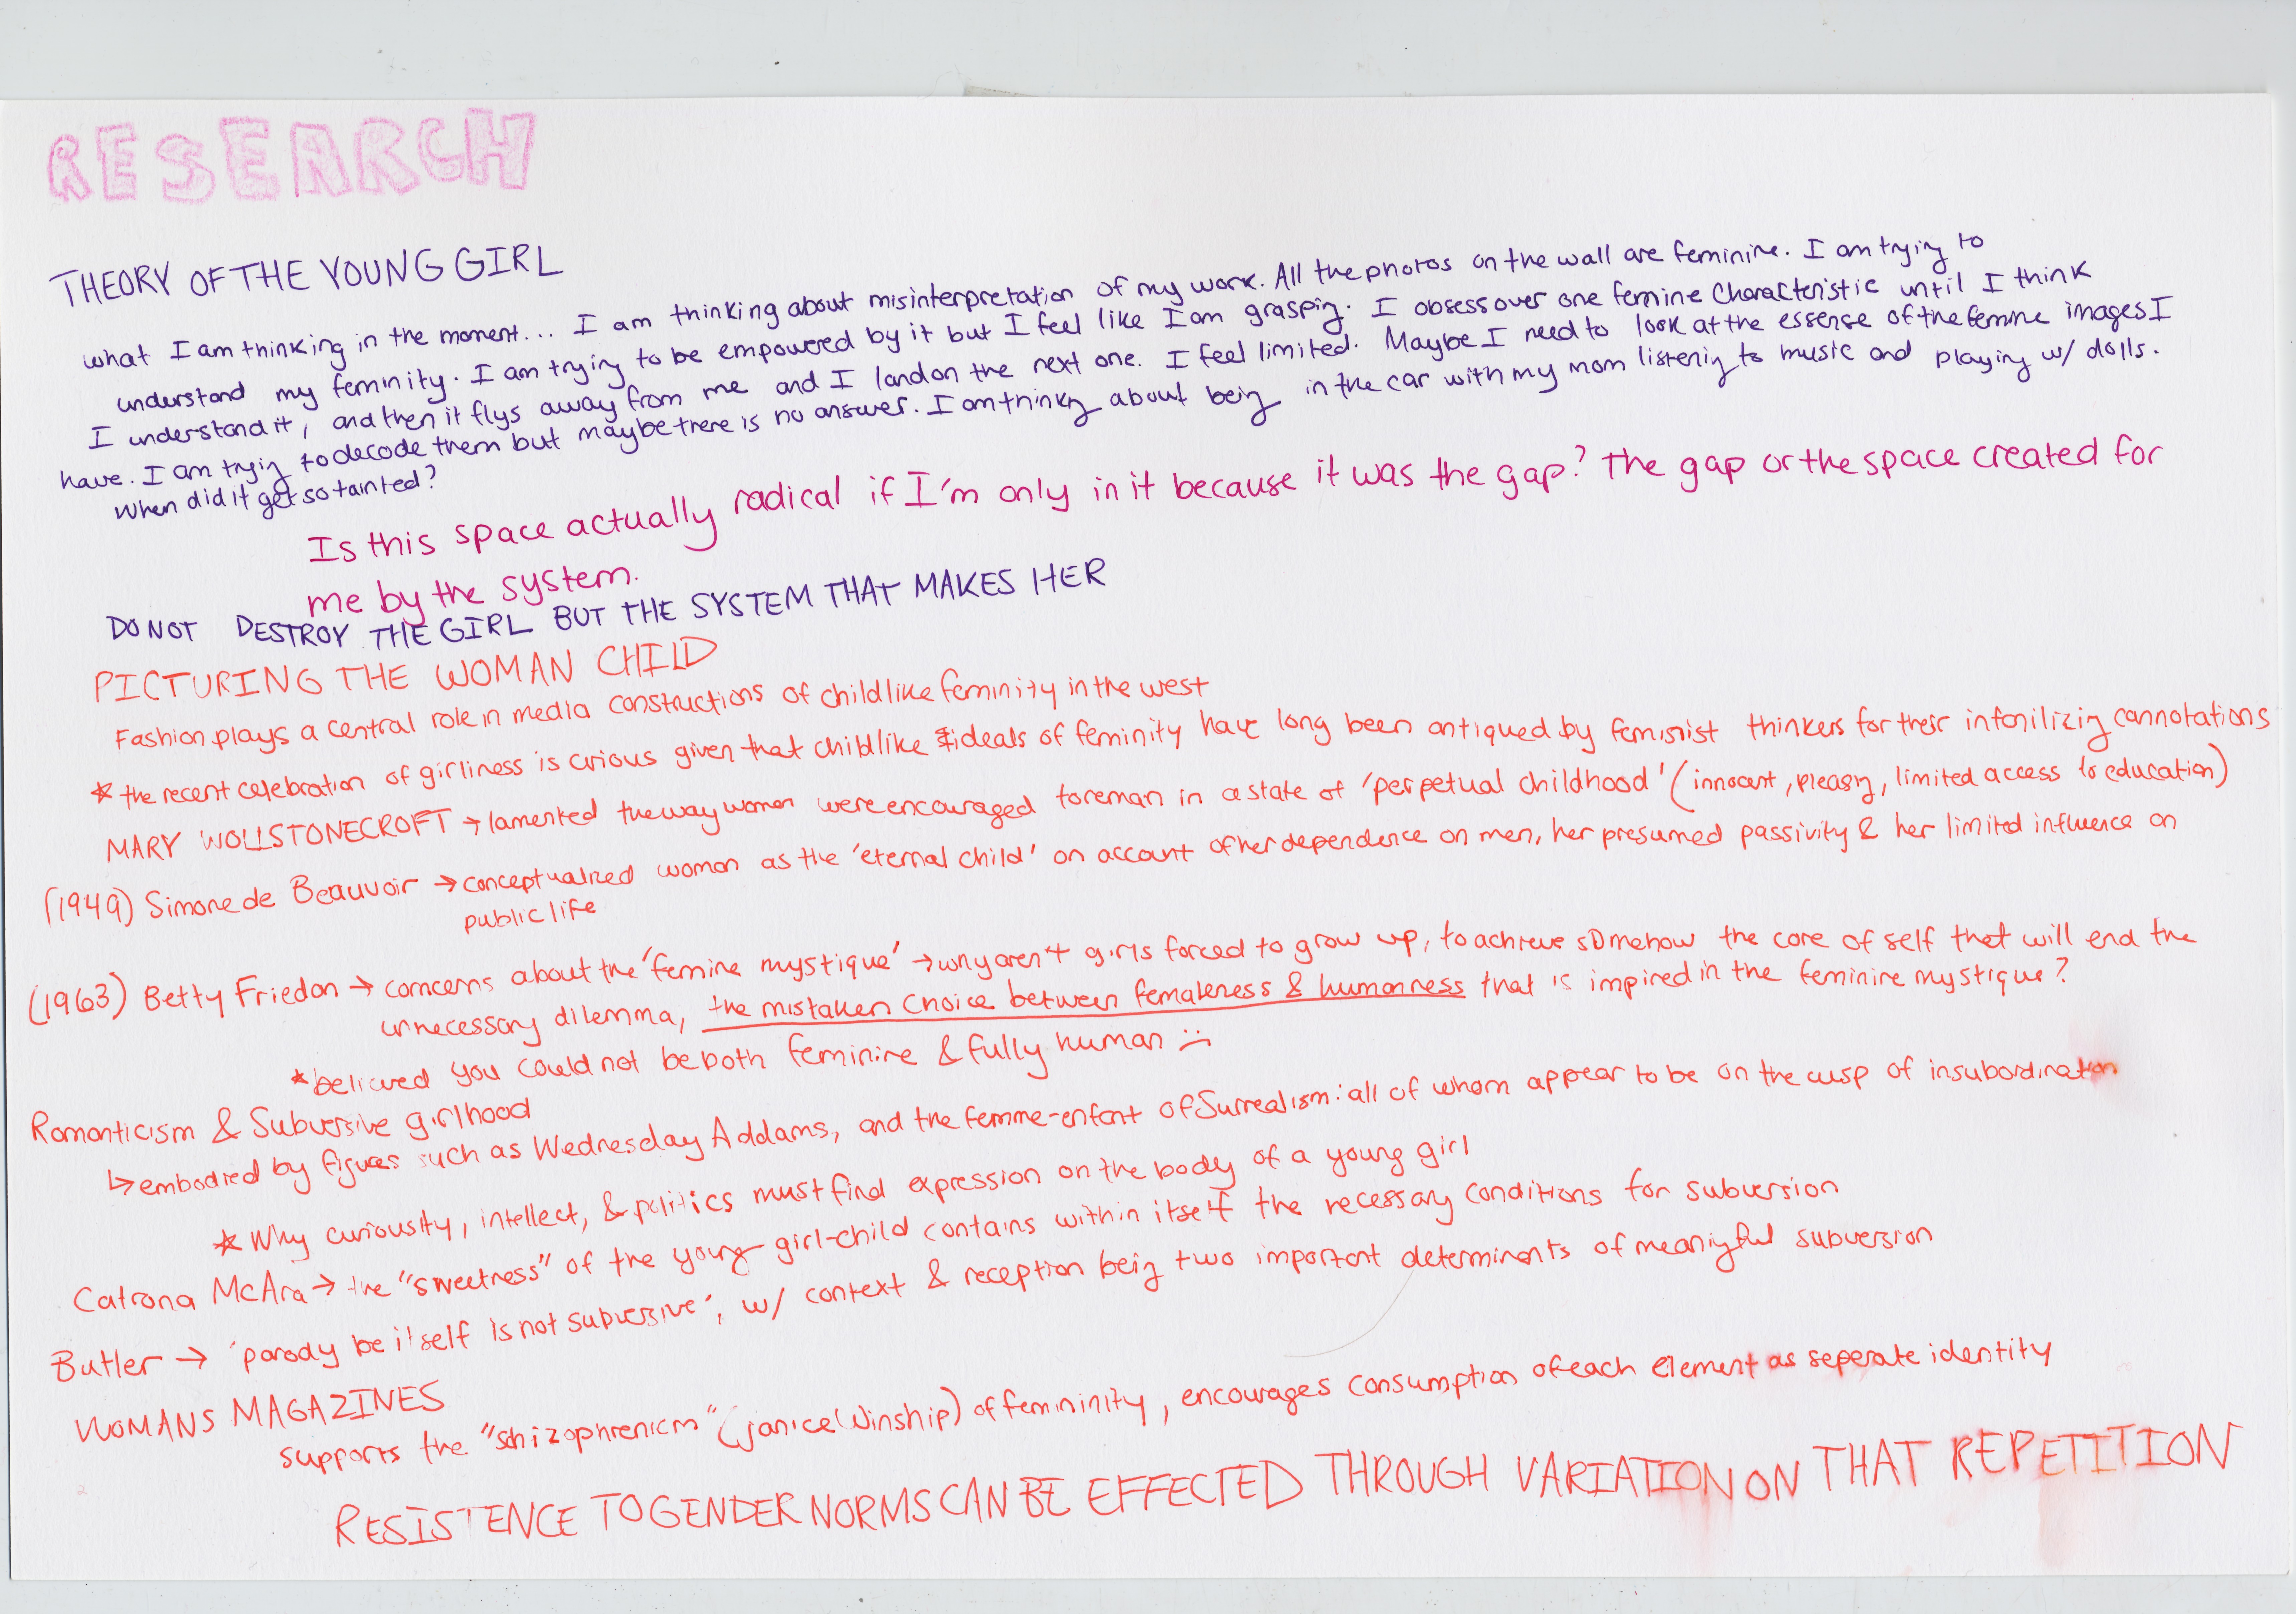 RESEARCH
THEORY OF THE YOUNG GIRL
what I am thinking in the moment... I am thinking about misinterpretation of my work. All the photos on the wall are feminine. I am trying to
understand my feminity. I am trying to be empowered by it but I feel like I am grasping. I obsess over one feminine characteristic until I think
I understand it, and then it flys away from me and I land on the next one. I feel limited. Maybe I need to look at the essense of the femine images I
have. I am trying to decode them but maybe there is no answer. I am thinking about being in the car with my mom listening to music and playing w/ dolls.
When did it get so tainted?
Is this space actually radical if I'm only in it because it was the gap? The gap or the space created for
me by the system.
DO NOT DESTROY THE GIRL BUT THE SYSTEM THAT MAKES HER
PICTURING THE WOMAN CHILD
Fashion plays a central role in media constructions of childlike feminity in the west
* the recent celebration of girliness is curious given that childlike ideals of feminity have long been by feminist thinkers for their cannotations
MARY WOLLSTONECROFT → lamented the way women were encouraged to reman in a state of 'perpetual childhood' (innocent, pleasing, limited access to education)
(1949) Simone de Beauvoir → conceptualized woman as the 'eternal child' on account of her dependence on men, her presumed passivity & her limited influence on
public life
(1963) Betty Friedan → concerns about the 'femine mystique' → why aren't girls forced to grow up, to achieve somehow the core of self that will end the
unnecessary dilemma, the mistaken choice between femaleness & humanness that is impired in the feminine mystique?
* believed you could not be both feminine & fully human :(
Romanticism & Subversive girlhood
↳ embodied by figures such as Wednesday Addams, and the femme-enfant of Surrealism: all of whom appear to be on the cusp of insubordination
* Why curiousity, intellect, & politics must find expression on the body of a young girl
Catrona McAra → the "sweetness" of the young girl-child contains within itself the necessary conditions for subversion
Butler → 'parody be itself is not subversive', w/ context & reception being two important determinents of meaningful subversion
WOMANS MAGAZINES
supports the "schizophrenicm" (Janice Winship) of femininity, encourages consumption of each element as seperate identity
RESISTENCE TO GENDER NORMS CAN BE EFFECTED THROUGH VARIATION ON THAT REPETITION